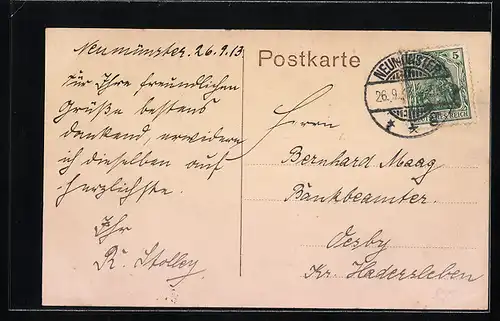 Neumünster, 26.9.13.
Für Ihre freundlichen
Grüße bestens
dankend, erwidere
ich dieselben auf
herzlichste.
Ihr
R. Stolley.
Postkarte
NEUMÜNSTER
26.9.
5
DEUTSCHES REICH
Herrn
Bernhard Maag
Bankbeamter.
Oesby
Kr. Hadersleben